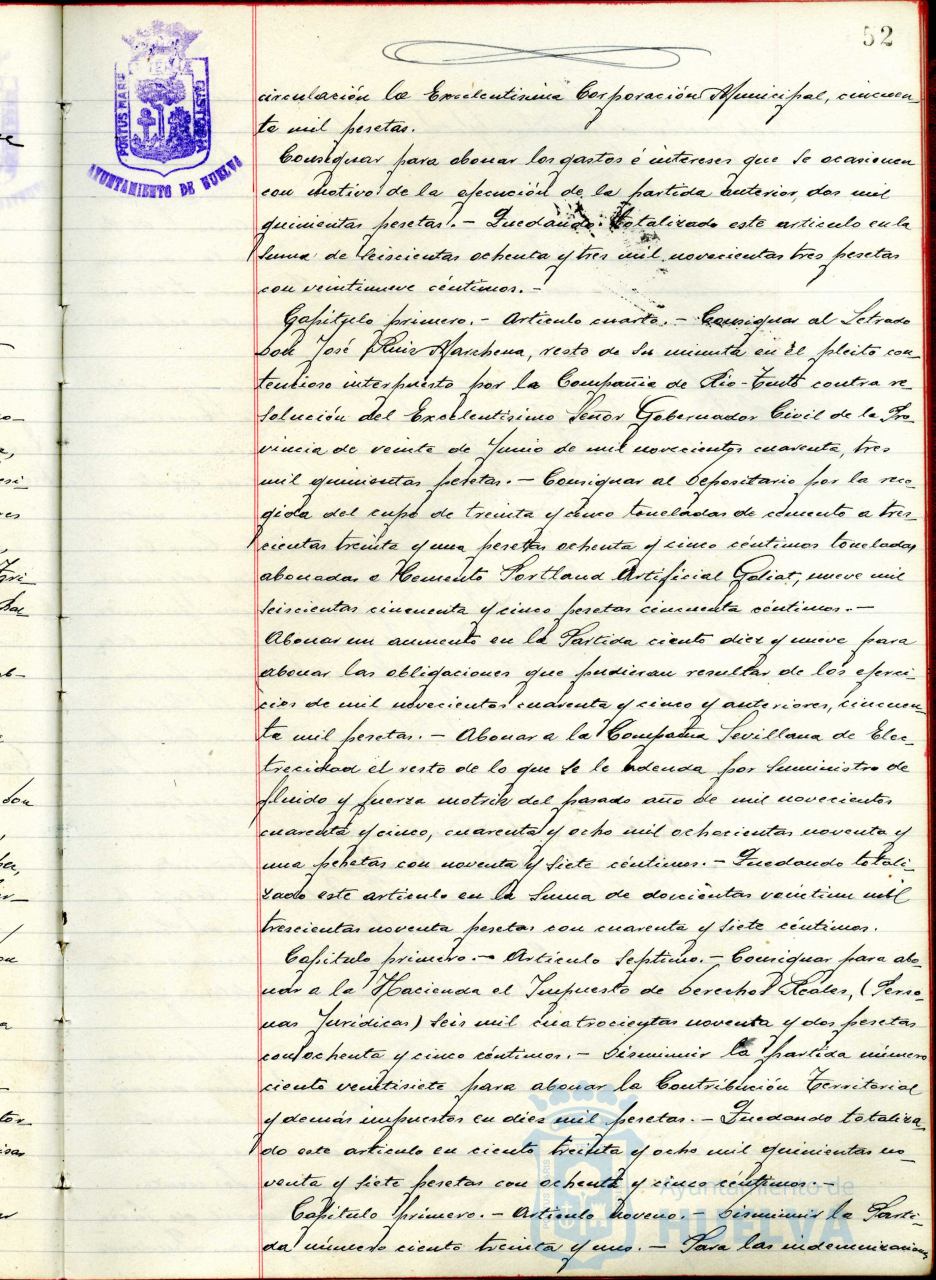 52
PORTUS MARIS
CUSTODIA
AYUNTAMIENTO DE HUELVA
circulación la Excelentísima Corporación Municipal, cincuen-
ta mil pesetas.
Consignar para abonar los gastos é intereses que se ocasionen
con motivo de la ejecución de la partida anterior, dos mil
quinientas pesetas.- Quedando totalizado este articulo en la
suma de seiscientas ochenta y tres mil novecientas tres pesetas
con veintinueve céntimos.-
Capitulo primero.- Articulo cuarto.- Consignar al Letrado
Don José Ruiz Marchena, resto de su minuta en el pleito con-
tencioso interpuesto por la Compañia de Rio-Tinto contra re-
solución del Excelentísimo Señor Gobernador Civil de la Pro-
vincia de veinte de Junio de mil novecientos cuarenta, tres
mil quinientas pesetas.- Consignar al Depositario por la reco-
gida del cupo de treinta y cinco toneladas de cemento a tres-
cientas treinta y una pesetas ochenta y cinco céntimos toneladas
abonadas a Cemento Portland Artificial Goliat, nueve mil
seiscientas cincuenta y cinco pesetas cincuenta céntimos.-
Abonar un aumento en la Partida ciento diez y nueve para
abonar las obligaciones que pudieran resultar de los ejerci-
cios de mil novecientos cuarenta y cinco y anteriores, cincuen-
ta mil pesetas.- Abonar a la Compañia Sevillana de Elec-
trecidad el resto de lo que se le adenda por suministro de
fluido y fuerza motriz del pasado año de mil novecientos
cuarenta y cinco, cuarenta y ocho mil ochocientas noventa y
una pesetas con noventa y siete céntimos.- Quedando totali-
zado este articulo en la suma de doscientas veintiun mil
trescientas noventa pesetas con cuarenta y siete céntimos.
Capitulo primero.- Articulo Septimo.- Consignar para abo-
nar a la Hacienda el Impuesto de Derechos Reales, (Perso-
nas Jurídicas) seis mil cuatrocientas noventa y dos pesetas
con ochenta y cinco céntimos.- Disminuir la partida número
ciento veintisiete para abonar la Contribución Territorial
y demás impuestos en diez mil pesetas.- Quedando totaliza-
do este articulo en ciento treinta y ocho mil quinientas no-
venta y siete pesetas con ochenta y cinco céntimos.-
Capitulo primero.- Articulo noveno.- Disminuir la Parti-
da número ciento treinta y uno.- Para las indemnizaciones
Ayuntamiento de
HUELVA